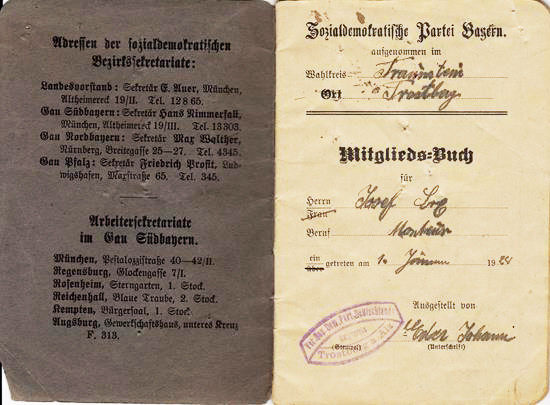 Adressen der sozialdemokratischen
Bezirkssekretariate:
Landesvorstand: Sekretär E. Auer, München,
Altheimereck 19/II. Tel. 12865.
Gau Südbayern: Sekretär Hans Nimmerfall,
München, Altheimereck 19/III. Tel. 13303.
Gau Nordbayern: Sekretär Max Walther,
Nürnberg, Breitegasse 25–27. Tel. 4345.
Gau Pfalz: Sekretär Friedrich Profit, Lud-
wigshafen, Maxstraße 65. Tel. 345.
Arbeitersekretariate
im Gau Südbayern.
München, Pestalozzistraße 40–42/II.
Regensburg, Glockengasse 7/I.
Rosenheim, Sterngarten, 1. Stock.
Reichenhall, Blaue Traube, 2. Stock.
Kempten, Bürgersaal, 1. Stock.
Augsburg, Gewerkschaftshaus, unteres Kreuz
F. 313.
Sozialdemokratische Partei Bayern.
aufgenommen im
Wahlkreis Traunstein
Ort Trostberg
Mitglieds-Buch
für
Herrn Josef
Frau
Beruf Monteur
ein
über getreten am 1. 19
Ausgestellt von
Eder Johann
(Stempel) (Unterschrift)
Trostberg a. Alz